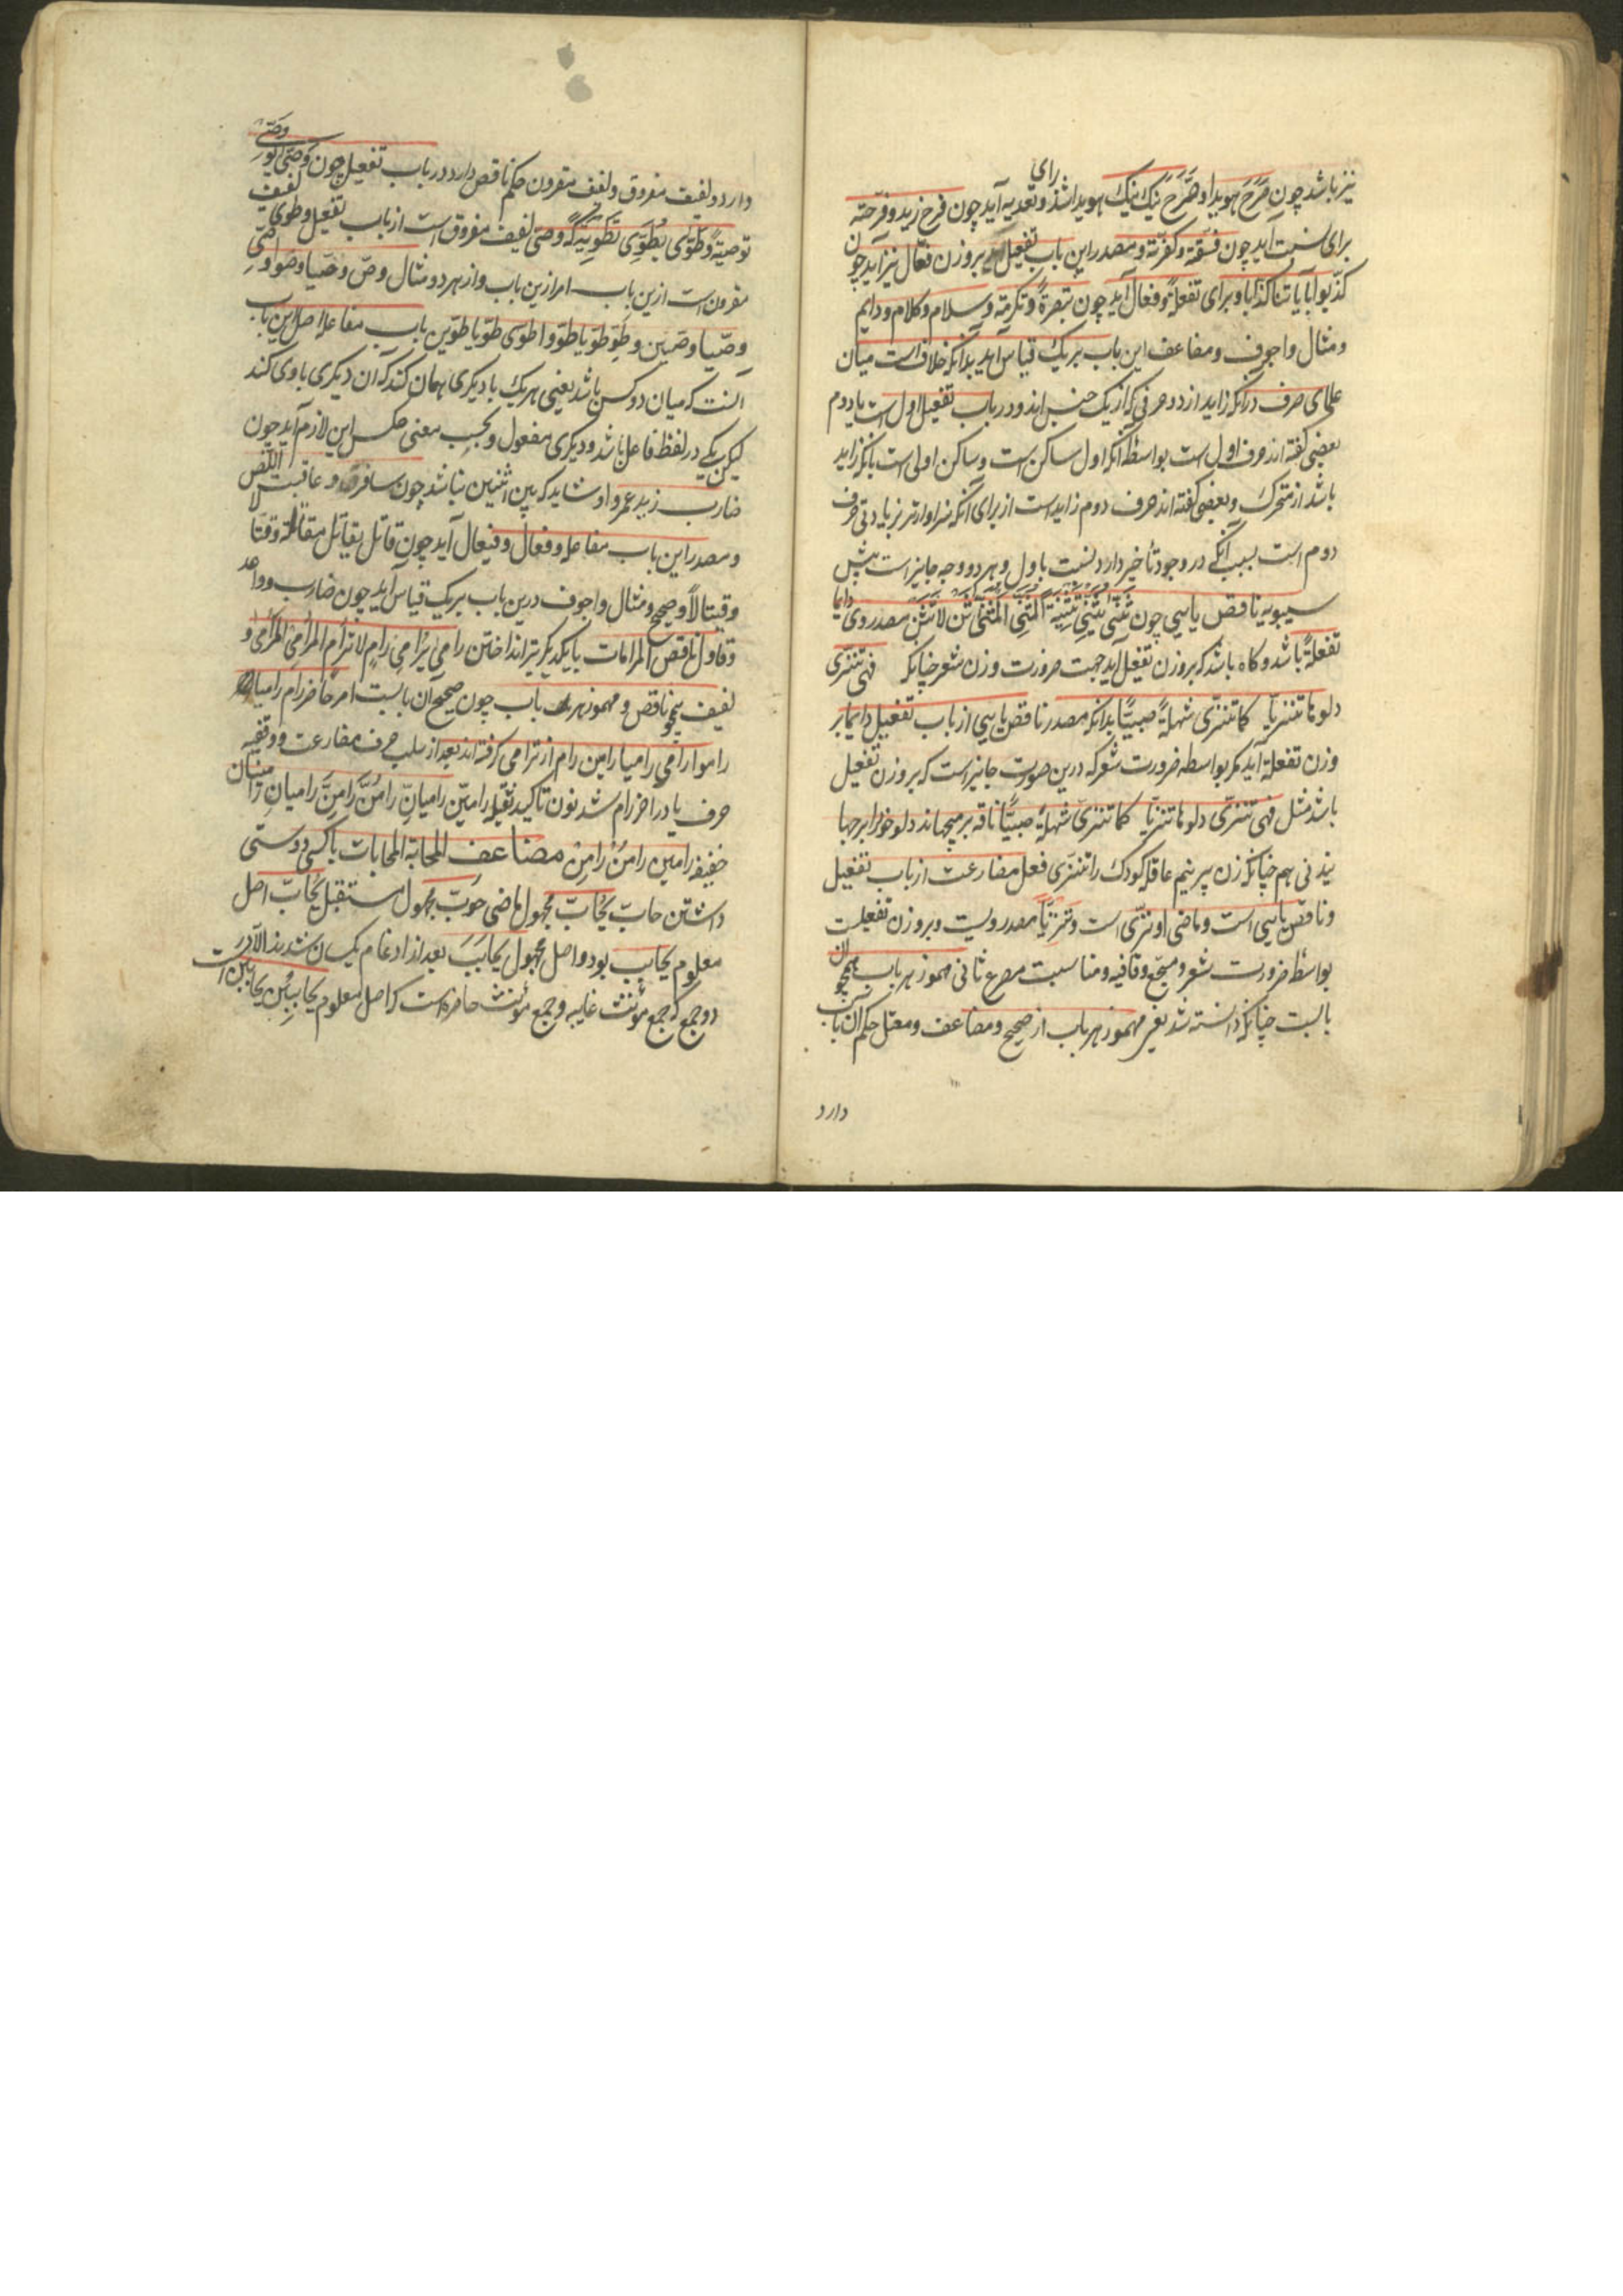 نیز باشد چون صَرَّحَ هویدا و صَرَّحَ نیک نیک هویدا شد و تعدیه آید چون فرح زید و فرّحته
برای
برای نسبت آید چون فسّقته و کفّرته و مصدر این باب تفعیل بر وزن فعّال نیز آید چون
کذّبوا بآیاتنا کذّابا و برای تفعلةً و فعال آید چون تبصرةً و تکرمة و سلام و کلام و دایم
و مثال و اجوف و مضاعف این باب بر یک قیاس آید بدانکه خلاف است میان
علمای صرف در آنکه زاید از دو حرفی که از یک جنس‌اند و در باب تفعیل اول است یا دوم
بعضی گفته‌اند حرف اول است بواسطهٔ آنکه اول ساکن است و ساکن اولی است بآنکه زاید
باشد از متحرک و بعضی گفته‌اند حرف دوم زاید است از برای آنکه سزاوارتر بزیادتی حرف
دوم است بسبب آنکه در وجود تأخیر دارد نسبت باول و هر دو وجه جایز است پیش
سیبویه ناقص یایی چون ثَنَّی یُثَنِّی تَثْنِیَةً المُثَنِّی المُثَنَّی ثَنِّ لاتُثَنِّ مصدر وی دایما
تفعلةً باشد و گاه باشد که بر وزن تفعیل آید جهت ضرورت وزن شعر چنانکه فهی تنزّی
دلوها تنزیّا کما تنزّی شهلةً صبیّا بدانکه مصدر ناقص یایی از باب تفعیل دایما بر
وزن تفعلة آید مگر بواسطه ضرورت شعر که درین صورت جایز است که بر وزن تفعیل
باشد مثل فهی تنزّی دلوها تنزیّا کما تنزّی شهلةً صبیّا ناقه برمیجهاند دلو خود را برجها
نیدنی هم چنانکه زن پیر نیم عاقله کودک را تنزّی فعل مضارعت از باب تفعیل
و ناقص یایی است و ماضی او نزّی است و تَنزِیّاً مصدر ویست و بر وزن تفعیلست
بواسطهٔ ضرورت شعر و سجّع و قافیه و مناسبت مصرع ثانی مهموز هر باب همچون
بابست چنانکه دانسته شد یعنی مهموز هر باب از صحیح و مضاعف و معتل حکم آن باب
دارد
دارد و لفیف مفروق و لفیف مقرون حکم ناقص دارد در باب تفعیل چون وَصّی یُوَصِّی
توصیةً و طَوّی یُطَوِّی تَطْوِیَةً که وصّی لفیف مفروق است از باب تفعیل و طوّی لفیف
مقرون است ازین باب امر ازین باب و از هر دو مثال وصّ وصّیا وصّوا وصّی
وصّیا وصّین و طَوِّ طوّیا طوّوا طوّی طوّیا طوّین باب مفاعله اصل این باب
آنست که میان دو کس باشد یعنی هر یک با دیگری همان کند که آن دیگری با وی کند
لیکن یکی در لفظ فاعل باشد و دیگری مفعول و بحسب معنی عکس این لازم آید چون
ضارب زید عمروا و شاید که بین اثنین نباشد چون سافر و عاقبت اللص
و مصدر این باب مفاعله و فعال و فیعال آید چون قاتل یقاتل مقاتلة و قتالا
و قیتالاً و صحیح و مثال و اجوف درین باب بر یک قیاس آید چون ضارب و واعد
و قاول ناقص المرامات بایکدیگر تیر انداختن رامی یُرامِی رامِ لاتُرامِ المُرامِی المُرامَی و
لفیف همچو ناقص و مهموز هر باب چون صحیح آن بابست امر حاضر رام رامیا
راموا رامی رامیا رامین رام از ترامی گرفته‌اند بعد از سلب حرف مضارعت و وقفیه
حرف یا در آخر رام شد نون تاکید ثقیله رامینّ رامیانّ رامُنَّ رامِنَّ رامیانِّ رامینانّ
خفیفه رامین رامُنْ رامِنْ مضاعف المحابّة المحابات باکسی دوستی
داشتن حابّ یُحابّ مجهول ماضی حوبّ مجهول مستقبل یُحابّ اصل
معلوم یحابِب بود و اصل مجهول یحابَب بعد از ادغام یکسان شدند الّا در
دو جمع که جمع مؤنث غایبه و جمع مؤنث حاضره است که اصل معلوم یحابِبْن یحابَبْن است